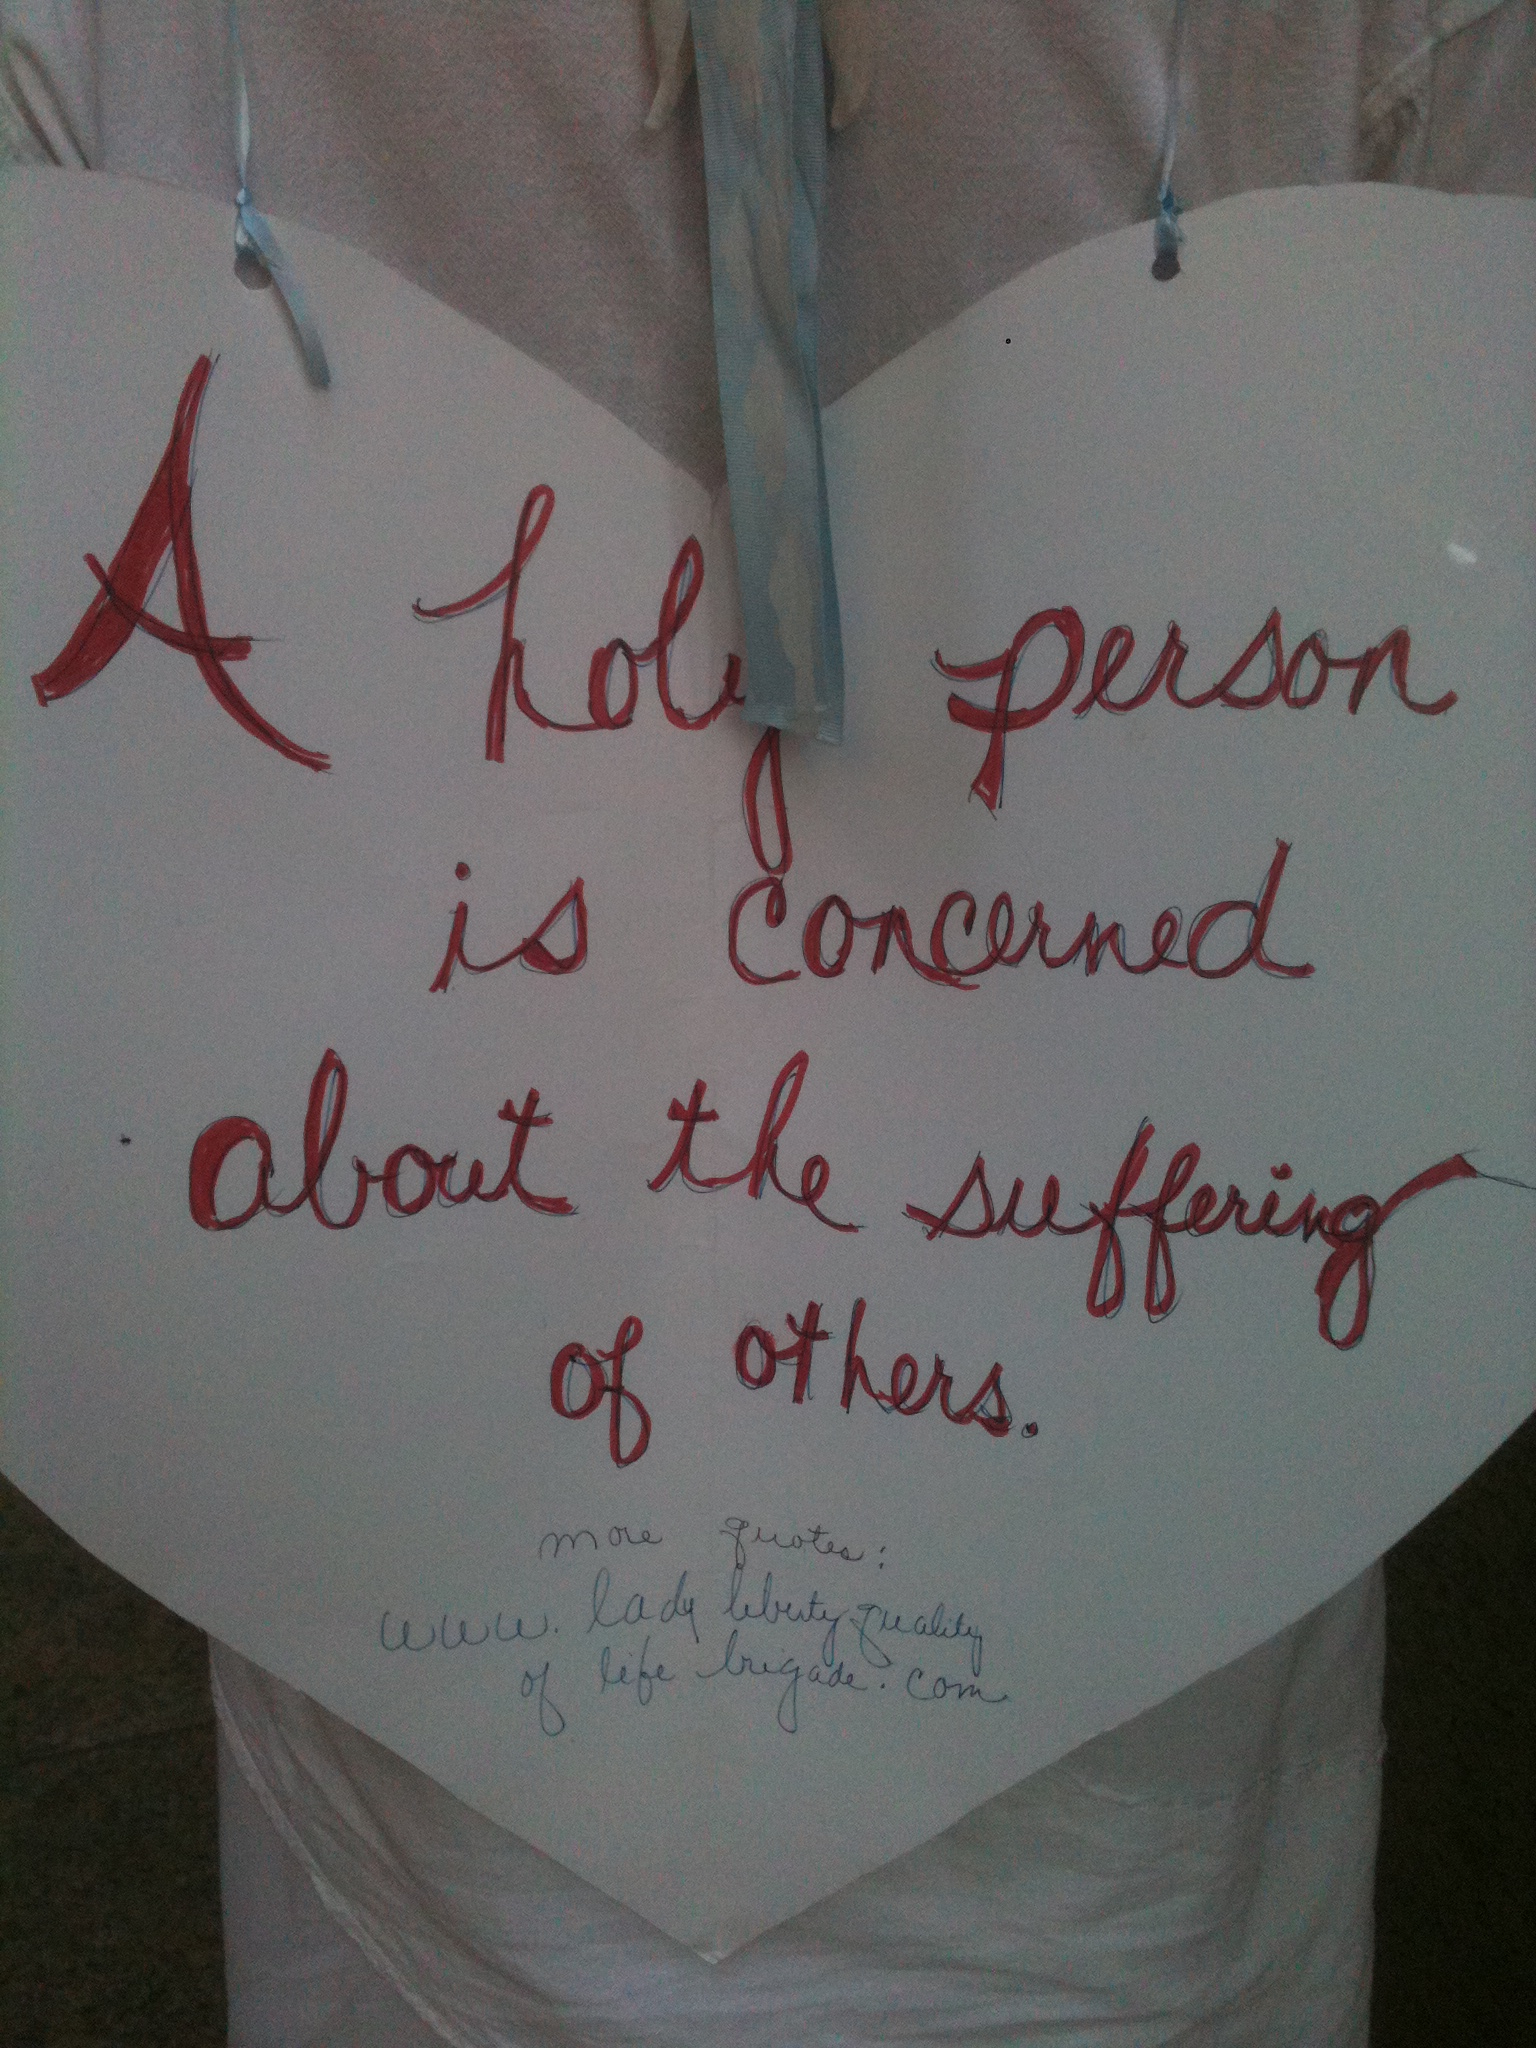 A holy person
is concerned
about the suffering
of others.
more quotes:
www. lady liberty quality
of life brigade. com